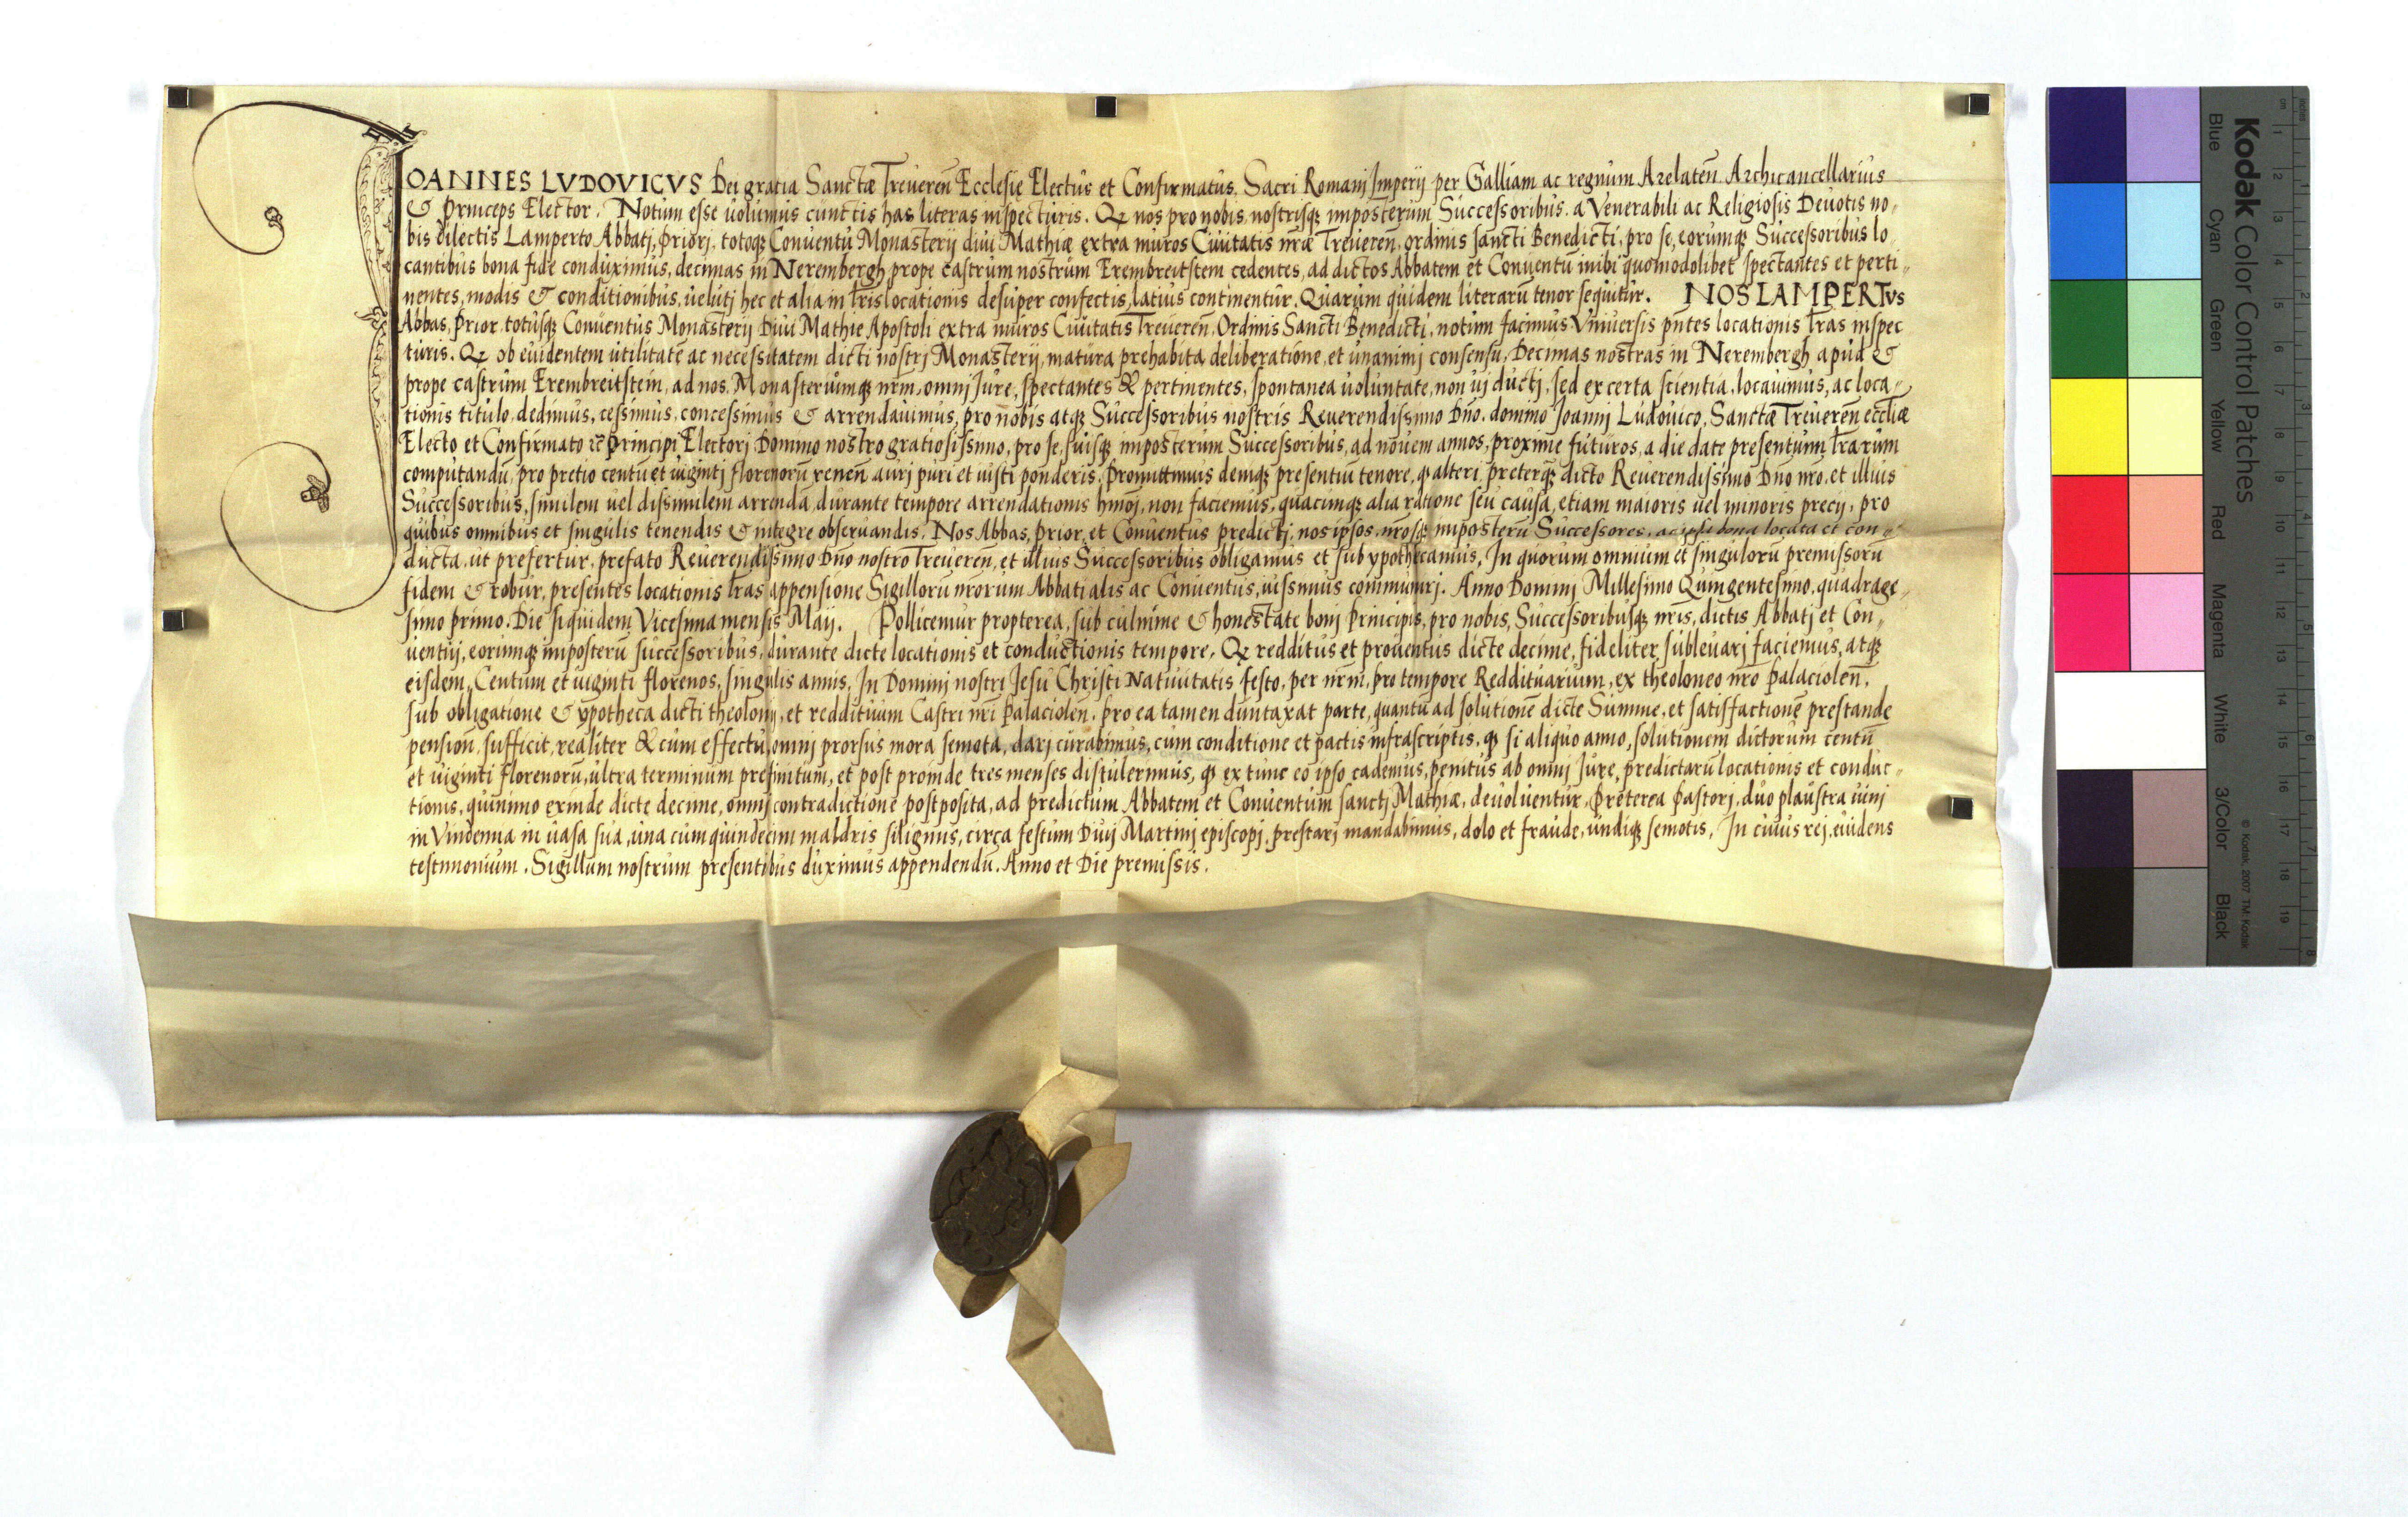 IOANNES LVDOVICVS Dei gratia Sanctæ Treueren̄ Ecclesię Electus et Confirmatus. Sacri Romani Imperij per Galliam ac regnum Arelaten̄ Archicancellarius
& Princeps Elector. Notum esse uolumus cunctis has literas inspecturis. Qz nos pro nobis, nostrisqz imposterum Successoribus. a Venerabili ac Religiosis Deuotis no„
bis dilectis Lamperto Abbatj, Priorj, totoqz Conuentu Monasterij diui Mathiæ extra muros Ciuitatis nr̄æ Treueren̄, ordinis sancti Benedicti, pro se, eorumqz Successoribus lo„
cantibus bona fide conduximus, decimas in Nerembergh prope castrum nostrum Erembreitstein cedentes, ad dictos Abbatem et Conuentū inibi quomodolibet spectantes et perti„
nentes, modis & conditionibus, uelutj hec et alia in lr̄is locationis desuper confectis, latius continentur. Quarum quidem literarū tenor sequitur. NOS LAMPERTvs
Abbas, Prior, totusqz Conuentus Monasterij Diui Mathie Apostoli extra muros Ciuitatis Treueren̄, Ordinis Sancti Benedicti, notum facimus Vniuersis pn̄tes locationis lr̄as inspec
turis. Qz ob euidentem utilitatē ac necessitatem dicti nostrj Monasterij, matura prehabita deliberatione, et unanimj consensu, Decimas nostras in Nerembergh apud &
prope castrum Erembreitstein, ad nos, Monasteriumqz nrm̄, omnj Jure, spectantes & pertinentes, spontanea uoluntate, non uj ductj, sed ex certa scientia, locauimus, ac loca„
tionis titulo, dedimus, cessimus, concessimus & arrendauimus, pro nobis atqz Successoribus nostris Reuerendissimo Dn̄o. domino Joannj Ludouico, Sanctæ Treueren̄ eccłiæ
Electo et Confirmato principi Electorj Domino nostro gratiosissimo, pro se, suisqz imposterum Successoribus, ad nouem annos, proxime futuros, a die date presentium lr̄arum
computandū, pro pretio centū et uigintj florenorū renen̄ aurj puri et iusti ponderis. Promittimus demqz presentiū tenore, qz alteri preterqz dicto Reuerendissimo Dn̄o nr̄o, et illius
Successoribus, similem uel dissimilem arrendā, durante tempore arrendationis hmōj, non faciemus, quacunqz alia ratione seu causa, etiam maioris uel minoris precij, pro
quibus omnibus et singulis tenendis & integre obseruandis. Nos Abbas, Prior, et Conuentus predictj, nos ipsos, nr̄osqz imposterū Successores, ac ipsa bona locata et con„
ducta, ut prefertur, prefato Reuerendissimo Dn̄o nostro Treueren̄, et illius Successoribus obligamus et subypothecamus, In quorum omnium et singulorū premissorū
fidem & robur, presentes locationis lr̄as appensione Sigillorū nr̄orum Abbatialis ac Conuentus, iussimus communirj. Anno Dominj Millesimo Quingentesimo, quadrage„
simo primo. Die siquidem Vicesima mensis Maij. Pollicemur propterea, sub culmine & honestate bonj Principis, pro nobis, Successoribusqz nr̄is, dictis Abbatj et Con„
uentuj, eorumqz imposterū successoribus, durante dicte locationis et conductionis tempore, Qz redditus et prouentus dicte decime, fideliter subleuarj faciemus, atqz
eisdem, Centum et uiginti florenos, singulis annis, In Dominj nostri Jesu Christi Natiuitatis festo, per nrm̄, pro tempore Reddituarium, ex theoloneo nr̄o palaciolen̄,
sub obligatione & ypotheca dicti theolonij, et reddituum Castri nr̄i palaciolen̄, pro ea tamen duntaxat parte, quantū ad solutionē dicte Summe, et satisfactionē prestande
pension̄, sufficit, realiter & cum effectu, omnj prorsus mora semota, darj curabimus, cum conditione et pactis infrascriptis, qz si aliquo anno, solutionem dictorum centū
et uiginti florenorū, ultra terminum prefinitum, et post proinde tres menses distulerimus, qz ex tunc eo ipso cademus, penitus ab omnj Jure, predictarū locationis et conduc„
tionis, quinimo exinde dicte decime, omnj contradictione postposita, ad predictum Abbatem et Conuentum sanctj Mathiæ, deuoluentur, Preterea pastorj, duo plaustra uinj
in Vindemia in uasa sua, una cum quindecim maldris siliginis, circa festum Diuj Martinj episcopj, prestarj mandabimus, dolo et fraude, undiqz semotis, In cuius rej, euidens
testimonium. Sigillum nostrum presentibus duximus appendendū. Anno et Die premissis.
Kodak Color Control Patches
© Kodak, 2007 TM: Kodak
Blue Cyan Green Yellow Red Magenta White 3/Color Black
cm 1 2 3 4 5 6 7 8 9 10 11 12 13 14 15 16 17 18 19
inches 1 2 3 4 5 6 7 8